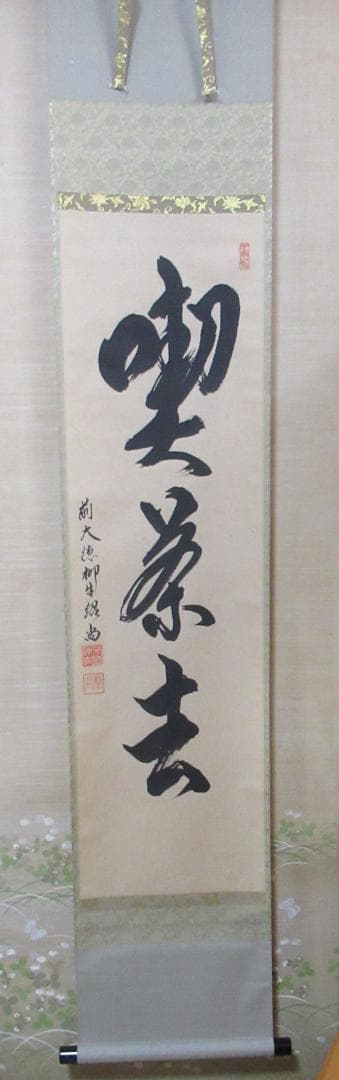 喫茶去
前大徳柳生紹尚